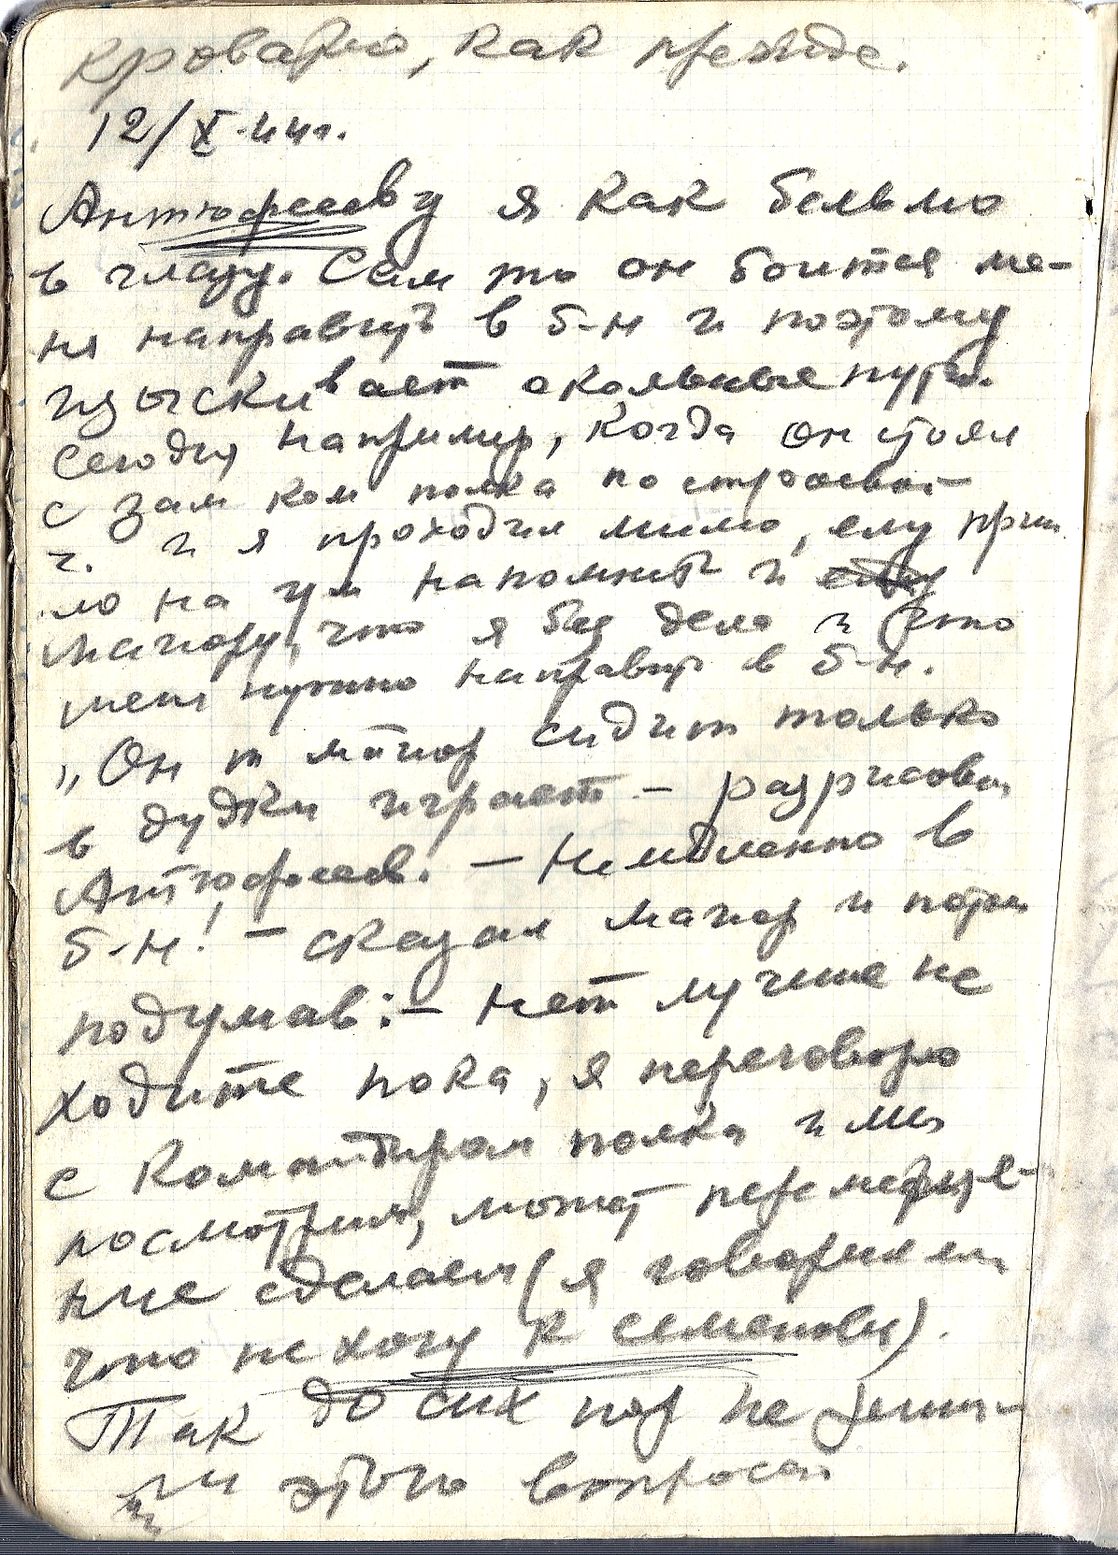 кроватью, как прежде.
12/X-44г.
Антюфееву я как бельмо
в глазу. Сам то он боится ме-
ня направить в б-н и поэтому
изыскивает окольные пути.
Сегодня например, когда он стоял
с зам ком полка по строевой
ч. и я проходил мимо, ему приш
ло на ум напомнить и
майору, что я без дела и что
меня нужно направить в б-н.
„Он т майор сидит только
в дудки играет – разрисовал
Антюфеев. – Немедленно в
б-н! – сказал майор и потом
подумав: – нет лучше не
ходите пока, я переговорю
с командиром полка и мы
посмотрим, может перемеще-
ние сделаем (я говорил им
что не хочу к семенову).
Так до сих пор не реши-
ли этого вопроса